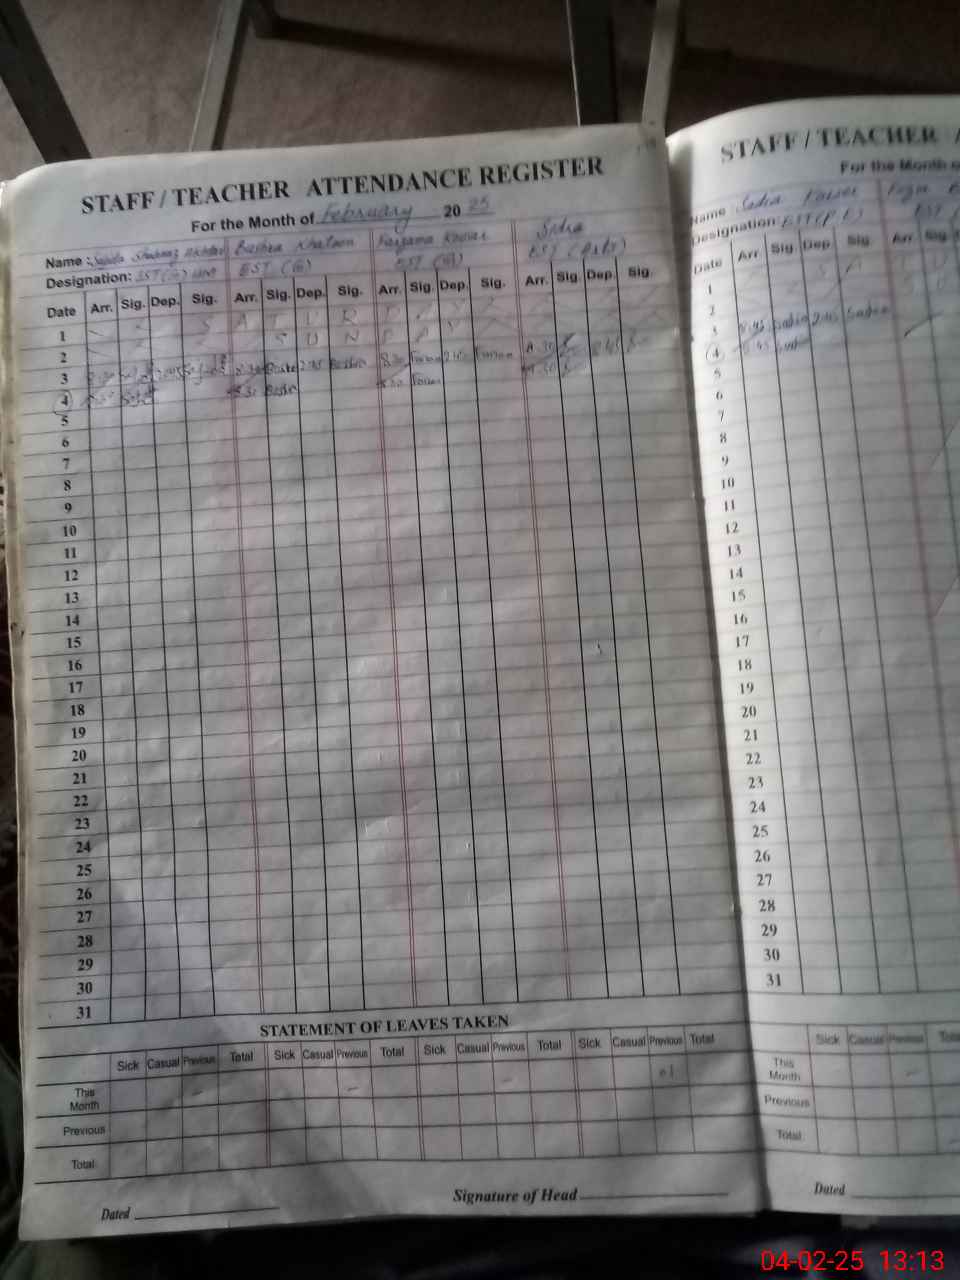 STAFF / TEACHER ATTENDANCE REGISTER
For the Month of February 20 25
Name : Sajida Shahnaz Akhtar Bushra Khatoon Farzana Kousar Sidra
Designation: EST (G) EST (G) EST (Arts)
Date Arr. Sig. Dep. Sig. Arr. Sig. Dep. Sig. Arr. Sig. Dep. Sig. Arr. Sig. Dep. Sig.
1 S A T U R D A Y
2 S U N D A Y
3 8:30 2:45 8:30 Bushra 2:45 Bushra 8:30 2:45
4 8:30 8:30 Bushra 8:30
5
6
7
8
9
10
11
12
13
14
15
16
17
18
19
20
21
22
23
24
25
26
27
28
29
30
31
STATEMENT OF LEAVES TAKEN
Sick Casual Previous Total Sick Casual Previous Total Sick Casual Previous Total Sick Casual Previous Total
This Month - - - 01
Previous
Total
Signature of Head
Dated
STAFF / TEACHER
For the Month
Name Sadia Kousar
Designation: EST (P.E)
Date Arr. Sig. Dep. Sig. Arr. Sig.
1
2
3 8:45 Sadia 2:45 Sadia
4 8:45
5
6
7
8
9
10
11
12
13
14
15
16
17
18
19
20
21
22
23
24
25
26
27
28
29
30
31
Sick Casual Previous
This Month -
Previous
Total
Dated
04-02-25 13:13